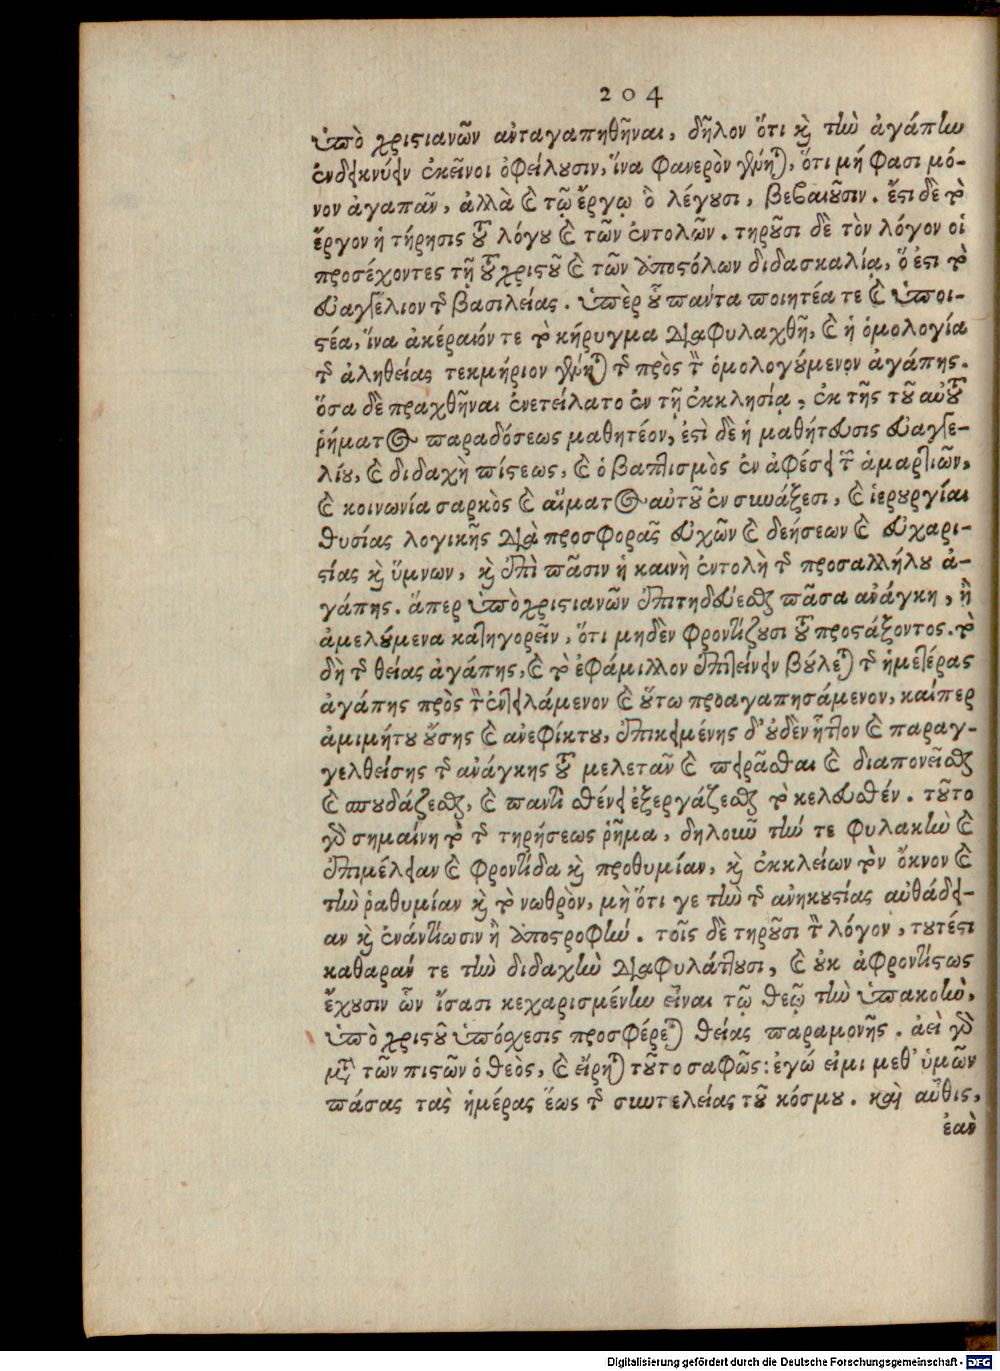 204
ὑπὸ χριστιανῶν ἀνταγαπηθῆναι, δῆλον ὅτι καὶ τὴν ἀγάπην
ἐνδεικνύειν ἐκεῖνοι ὀφείλουσιν, ἵνα φανερὸν γένηται, ὅτι μή φασι μό-
νον ἀγαπᾶν, ἀλλὰ καὶ τῷ ἔργῳ ὃ λέγουσι, βεβαιοῦσιν. ἔστι δὲ τὸ
ἔργον ἡ τήρησις τοῦ λόγου καὶ τῶν ἐντολῶν. τηροῦσι δὲ τὸν λόγον οἱ
προσέχοντες τῇ τοῦ χριστοῦ καὶ τῶν ἀποστόλων διδασκαλίᾳ, ὅ ἐστι τὸ
εὐαγγέλιον τῆς βασιλείας. ὑπὲρ οὗ πάντα ποιητέα τε καὶ ὑποι-
στέα, ἵνα ἀκέραιόν τε τὸ κήρυγμα διαφυλαχθῇ, καὶ ἡ ὁμολογία
τῆς ἀληθείας τεκμήριον γένηται τῆς πρὸς τὸν ὁμολογούμενον ἀγάπης.
ὅσα δὲ πραχθῆναι ἐνετείλατο ἐν τῇ ἐκκλησίᾳ, ἐκ τῆς τοῦ αὐτοῦ
ῥήματος παραδόσεως μαθητέον, ἐστὶ δὲ ἡ μαθήτευσις εὐαγγε-
λίου, καὶ διδαχὴ πίστεως, καὶ ὁ βαπτισμὸς ἐν ἀφέσει τῶν ἁμαρτιῶν,
καὶ κοινωνία σαρκὸς καὶ αἵματος αὐτοῦ ἐν συνάξεσι, καὶ ἱερουργίαι
θυσίας λογικῆς διὰ προσφορᾶς εὐχῶν καὶ δεήσεων καὶ εὐχαρι-
στίας καὶ ὕμνων, καὶ ἐπὶ πᾶσιν ἡ καινὴ ἐντολὴ τῆς προσαλλήλου ἀ-
γάπης. ἅπερ ὑπὸ χριστιανῶν ἐπιτηδεύεσθαι πᾶσα ἀνάγκη, ἢ
ἀμελούμενα κατηγορεῖν, ὅτι μηδὲν φροντίζουσι τοῦ προστάξοντος. τὸ
δὴ τῆς θείας ἀγάπης, καὶ τὸ ἐφάμιλλον ἐπιτείνειν βούλεται τῆς ἡμετέρας
ἀγάπης πρὸς τὸν ἐντειλάμενον καὶ οὕτω προαγαπησάμενον, καίπερ
ἀμιμήτου οὔσης καὶ ἀνεφίκτου, ἐπικειμένης δ' οὐδὲν ἧττον καὶ παραγ-
γελθείσης τῆς ἀνάγκης τοῦ μελετᾶν καὶ πειρᾶσθαι καὶ διαπονεῖσθαι
καὶ σπουδάζεσθαι, καὶ παντὶ σθένει ἐξεργάζεσθαι τὸ κελευσθέν. τοῦτο
γὰρ σημαίνη τὸ τῆς τηρήσεως ῥῆμα, δηλοῦν τήν τε φυλακὴν καὶ
ἐπιμέλειαν καὶ φροντίδα καὶ προθυμίαν, καὶ ἐκκλείων τὸν ὄκνον καὶ
τὴν ῥαθυμίαν καὶ τὸ νωθρὸν, μὴ ὅτι γε τὴν τῆς ἀνηκουστίας αὐθάδει-
αν καὶ ἐνάντίωσιν ἢ ἀποστροφήν. τοῖς δὲ τηροῦσι τὸν λόγον, τουτέστι
καθαράν τε τὴν διδαχὴν διαφυλάττουσι, καὶ οὐκ ἀφροντίστως
ἔχουσιν ὧν ἴσασι κεχαρισμένην εἶναι τῷ θεῷ τὴν ὑπακοὴν,
ὑπὸ χριστοῦ ὑπόσχεσις προσφέρεται θείας παραμονῆς. ἀεὶ γὰρ
μετὰ τῶν πιστῶν ὁ θεὸς, καὶ εἴρηται τοῦτο σαφῶς: ἐγώ εἰμι μεθ' ὑμῶν
πάσας τὰς ἡμέρας ἕως τῆς συντελείας τοῦ κόσμου. καὶ αὖθις,
ἐὰν
Digitalisierung gefördert durch die Deutsche Forschungsgemeinschaft - DFG